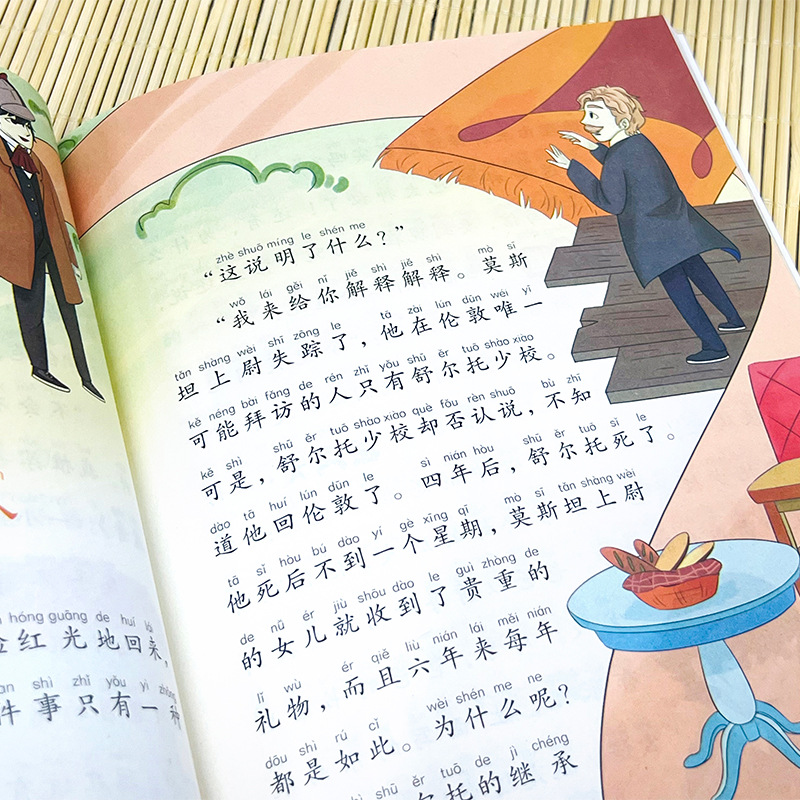 hóng guāng de huí lái
红光地回来，
shì zhǐ yǒu yì zhǒng
件事只有一种
zhè shuō míng le shén me
“这说明了什么？”
wǒ lái gěi nǐ jiě shì jiě shì mò sī
“我来给你解释解释。莫斯
tǎn shàng wèi shī zōng le tā zài lún dūn wéi yī
坦上尉失踪了，他在伦敦唯一
kě néng bài fǎng de rén zhǐ yǒu shū ěr tuō shào xiào
可能拜访的人只有舒尔托少校。
kě shì shū ěr tuō shào xiào què fǒu rèn shuō bù zhī
可是，舒尔托少校却否认说，不知
dào tā huí lún dūn le sì nián hòu shū ěr tuō sǐ le
道他回伦敦了。四年后，舒尔托死了。
tā sǐ hòu bú dào yí gè xīng qī mò sī tǎn shàng wèi
他死后不到一个星期，莫斯坦上尉
de nǚ ér jiù shōu dào le guì zhòng de
的女儿就收到了贵重的
lǐ wù ér qiě liù nián lái měi nián
礼物，而且六年来每年
dōu shì rú cǐ wèi shén me ne
都是如此。为什么呢？
shū ěr tuō de jì chéng
尔托的继承